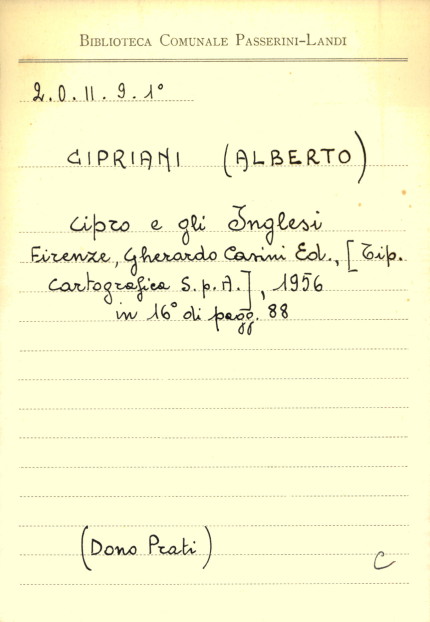 BIBLIOTECA COMUNALE PASSERINI-LANDI
2.O.II.9.1°
CIPRIANI (ALBERTO)
Cipro e gli Inglesi
Firenze, Gherardo Casini Ed., [Tip.
Cartografica S.p.A.], 1956
in 16° di pagg. 88
(Dono Prati)
C